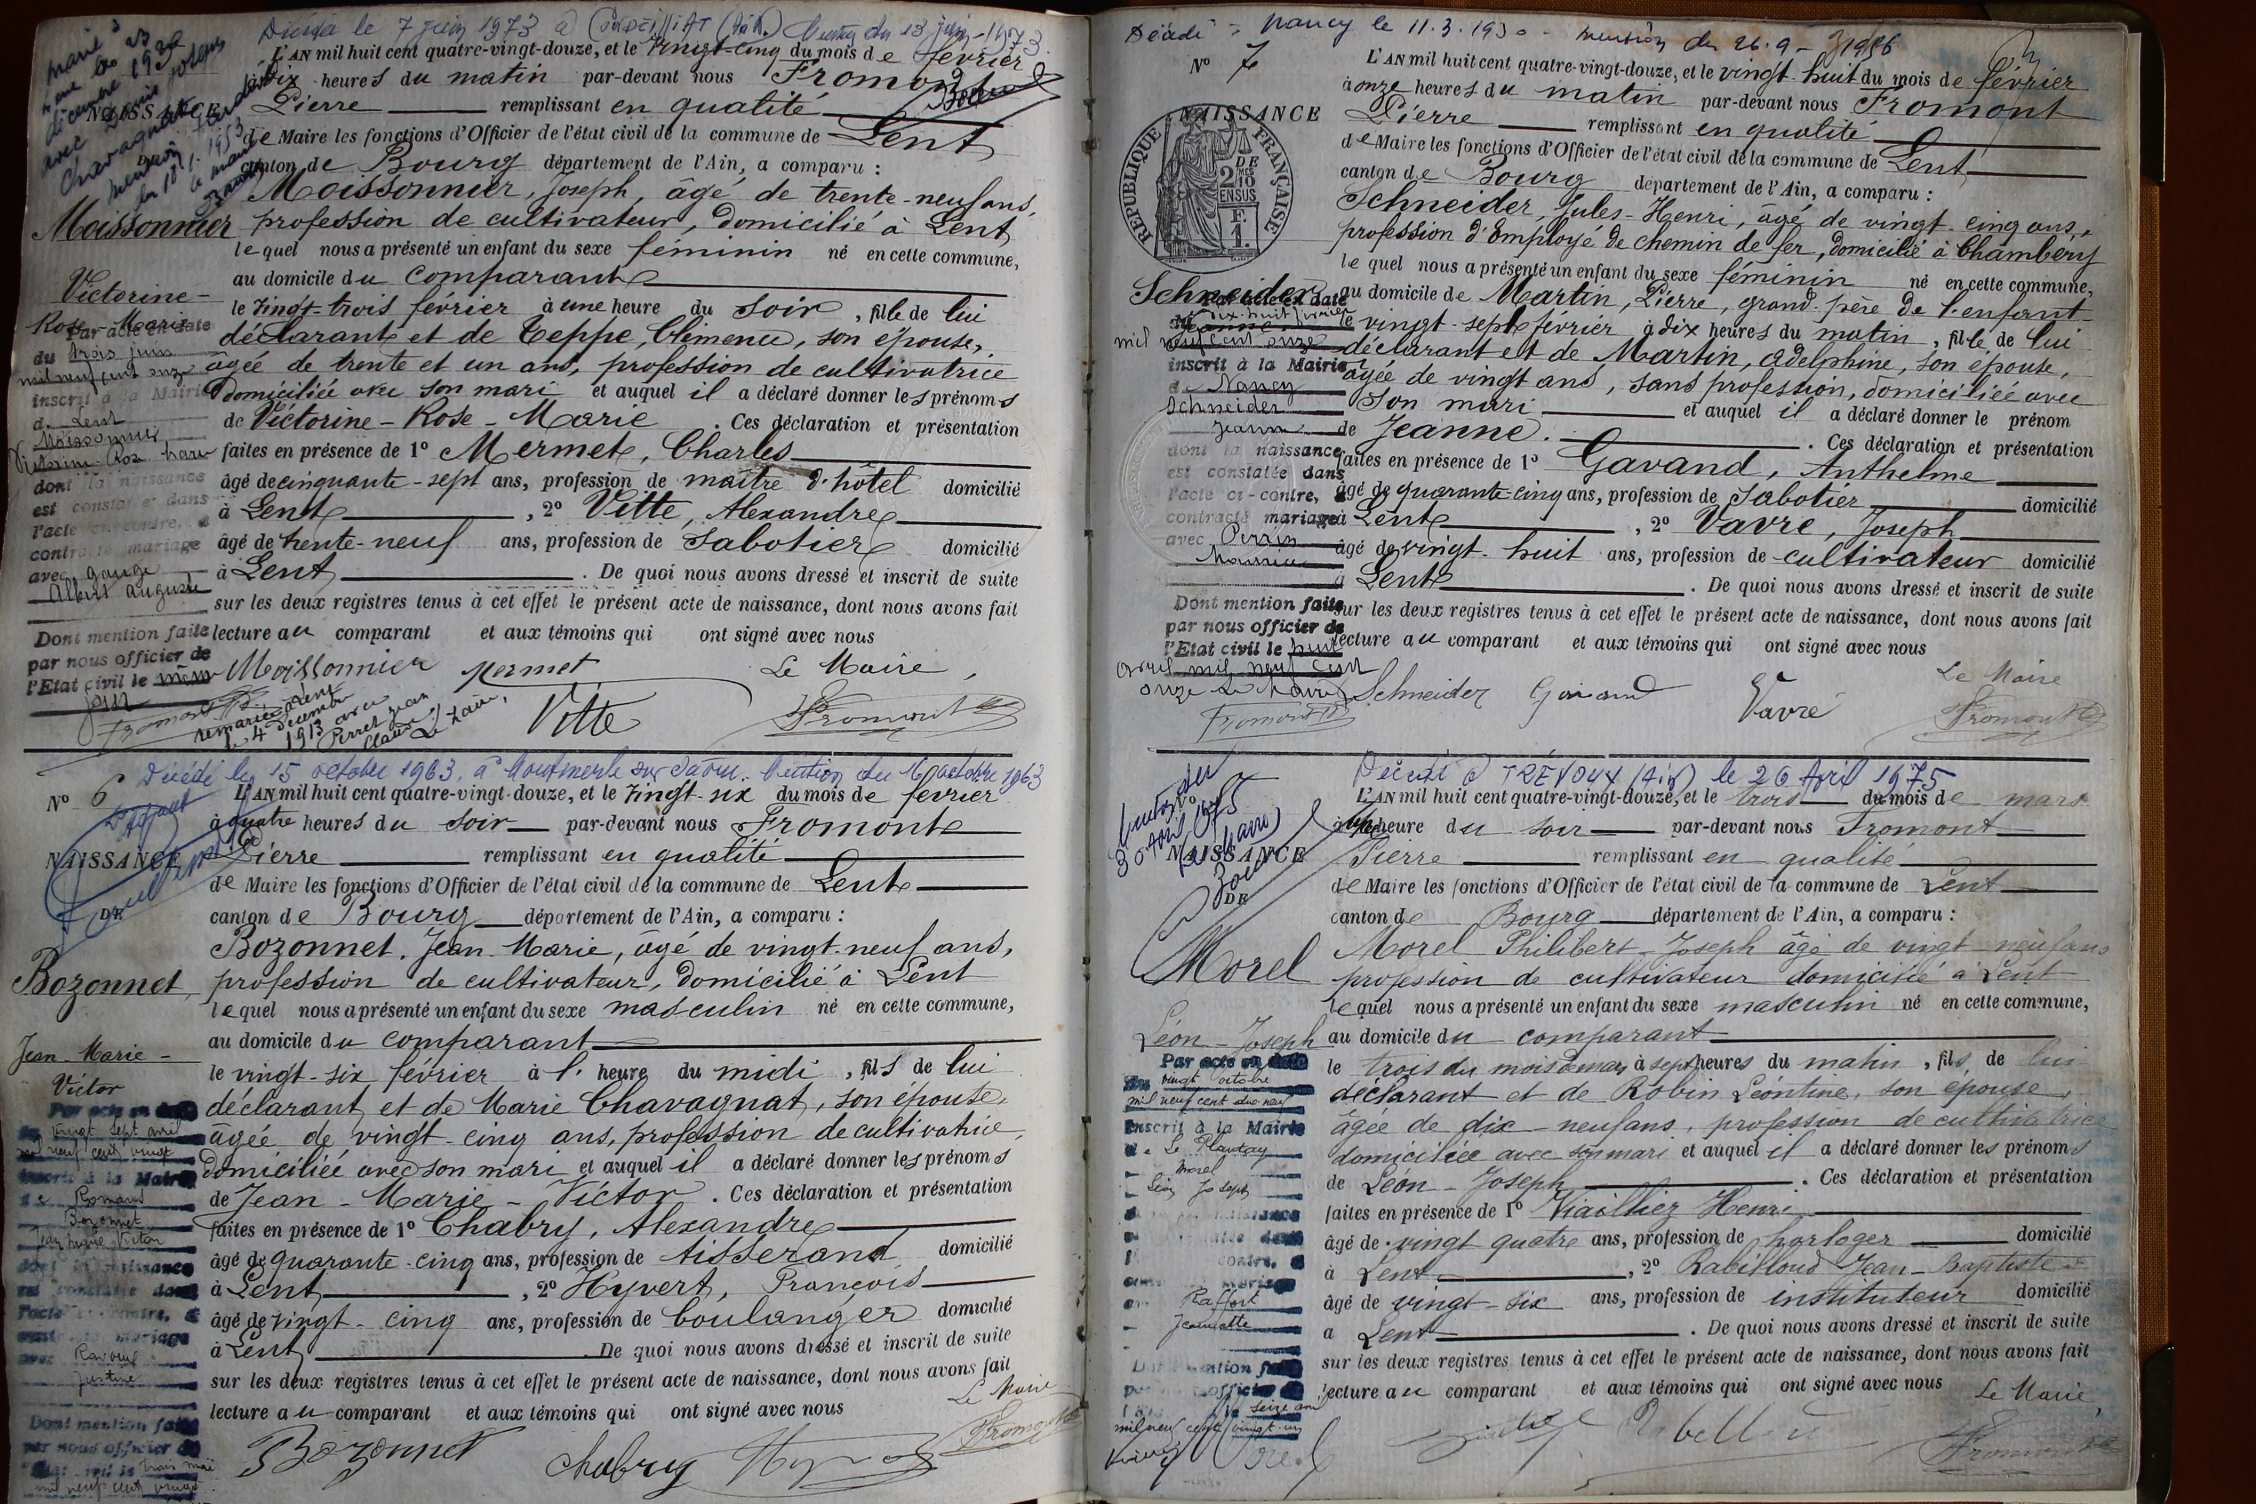 Décédé le 7 juin 1973 à
L'AN mil huit cent quatre-vingt-douze, et le vingt-cinq du mois de février
à dix heures du matin par-devant nous Fromont
NAISSANCE
Pierre remplissant en qualité
de Maire les fonctions d'Officier de l'état civil de la commune de Lent
canton de Bourg département de l'Ain, a comparu :
Moissonnier, Joseph, âgé de trente-neuf ans,
Moissonnier
profession de cultivateur, domicilié à Lent
lequel nous a présenté un enfant du sexe féminin né en cette commune,
au domicile du comparant
Victorine-
Rose-Marie
le vingt-trois février à une heure du soir, fille de lui
déclarant et de Teppe, Clémence, son épouse,
âgée de trente et un ans, profession de cultivatrice
domiciliée avec son mari et auquel il a déclaré donner les prénoms
de Victorine-Rose-Marie. Ces déclaration et présentation
faites en présence de 1° Mermet, Charles
âgé de cinquante-sept ans, profession de maître d'hôtel domicilié
à Lent, 2° Vitte, Alexandre
âgé de trente-neuf ans, profession de sabotier domicilié
à Lent. De quoi nous avons dressé et inscrit de suite
sur les deux registres tenus à cet effet le présent acte de naissance, dont nous avons fait
lecture au comparant et aux témoins qui ont signé avec nous
Par acte en date
du trois juin
mil neuf cent onze
inscrit à la Mairie
de Lent
Moissonnier
Victorine Rose Marie
dont la naissance
est constatée dans
l'acte ci-contre, a
contracté mariage
avec Gauge
Albert Auguste
Dont mention faite
par nous officier de
l'Etat civil le
juin
remariée à Lent
le 4 décembre
1913 avec
Perret Jean
Claude
Le Maire,
Moissonnier Mermet Le Maire,
Vitte Fromont
Décédé le 15 octobre 1963, à Montmerle sur Saône. Mention du 16 octobre 1963
N° 6
L'AN mil huit cent quatre-vingt-douze, et le vingt-six du mois de février
à quatre heures du soir par-devant nous Fromont
NAISSANCE
DE
Pierre remplissant en qualité
de Maire les fonctions d'Officier de l'état civil de la commune de Lent
canton de Bourg département de l'Ain, a comparu :
Bozonnet, Jean-Marie, âgé de vingt-neuf ans,
Bozonnet,
profession de cultivateur, domicilié à Lent
lequel nous a présenté un enfant du sexe masculin né en cette commune,
au domicile du comparant
Jean-Marie-
Victor
le vingt-six février à l' heure du midi, fils de lui
déclarant et de Marie Chavagnat, son épouse,
âgée de vingt-cinq ans, profession de cultivatrice,
domiciliée avec son mari et auquel il a déclaré donner les prénoms
de Jean-Marie-Victor. Ces déclaration et présentation
faites en présence de 1° Chabry, Alexandre
âgé de quarante-cinq ans, profession de tisserand domicilié
à Lent, 2° Hyvert, François
âgé de vingt-cinq ans, profession de boulanger domicilié
à Lent. De quoi nous avons dressé et inscrit de suite
sur les deux registres tenus à cet effet le présent acte de naissance, dont nous avons fait
lecture au comparant et aux témoins qui ont signé avec nous
Par acte en date
du vingt sept avril
mil neuf cent vingt
inscrit à la Mairie
de Romans
Bozonnet
Jean Marie Victor
dont la naissance
est constatée dans
l'acte ci-contre, a
contracté mariage
avec
Justine
Dont mention faite
par nous officier de
l'Etat civil le trois mai
mil neuf cent vingt
Le Maire
Bozonnet Chabry Fromont
Décédé à Nancy le 11.3.1930 - mention du 26.9-
N° 7
L'AN mil huit cent quatre-vingt-douze, et le vingt-huit du mois de février
à onze heures du matin par-devant nous Fromont
NAISSANCE
RÉPUBLIQUE FRANÇAISE
2 DMES 10
DE
EN SUS
F.
1.
Pierre remplissant en qualité
de Maire les fonctions d'Officier de l'état civil de la commune de Lent
canton de Bourg département de l'Ain, a comparu :
Schneider, Jules-Henri, âgé de vingt-cinq ans,
profession d'Employé de chemin de fer, domicilié à Chambéry
lequel nous a présenté un enfant du sexe féminin né en cette commune,
Schneider
au domicile de Martin, Pierre, grand-père de l'enfant
Jeanne
le vingt-sept février à dix heures du matin, fille de lui
déclarant et de Martin, Adelphine, son épouse,
âgée de vingt ans, sans profession, domiciliée avec
son mari et auquel il a déclaré donner le prénom
de Jeanne. Ces déclaration et présentation
faites en présence de 1° Gavand, Anthelme
âgé de quarante-cinq ans, profession de sabotier domicilié
à Lent, 2° Vavre, Joseph
âgé de vingt-huit ans, profession de cultivateur domicilié
à Lent. De quoi nous avons dressé et inscrit de suite
sur les deux registres tenus à cet effet le présent acte de naissance, dont nous avons fait
lecture au comparant et aux témoins qui ont signé avec nous
Par acte en date
du dix-huit février
mil neuf cent onze
inscrit à la Mairie
de Nancy
Schneider
Jeanne
dont la naissance
est constatée dans
l'acte ci-contre, a
contracté mariage
avec Perrin
Maurice
Dont mention faite
par nous officier de
l'Etat civil le huit
avril mil neuf cent
onze Le Maire
Fromont
Le Maire
Schneider Gavand Vavré Fromont
Décédé à TRÉVOUX (Ain) le 26 Avril 1975
L'AN mil huit cent quatre-vingt-douze, et le trois du mois de mars
à une heure du soir par-devant nous Fromont
NAISSANCE
DE
Pierre remplissant en qualité
de Maire les fonctions d'Officier de l'état civil de la commune de Lent
canton de Bourg département de l'Ain, a comparu :
Morel Philibert-Joseph âgé de vingt-neuf ans
Morel
profession de cultivateur domicilié à Lent
lequel nous a présenté un enfant du sexe masculin né en cette commune,
Léon-Joseph
au domicile du comparant
le trois du mois de mars à sept heures du matin, fils de lui
déclarant et de Robin Léontine, son épouse,
âgée de dix-neuf ans, profession de cultivatrice
domiciliée avec son mari et auquel il a déclaré donner les prénoms
de Léon-Joseph. Ces déclaration et présentation
faites en présence de 1° Viailliez Henri
âgé de vingt quatre ans, profession de horloger domicilié
à Lent, 2° Rabilloud Jean-Baptiste
âgé de vingt-six ans, profession de instituteur domicilié
à Lent. De quoi nous avons dressé et inscrit de suite
sur les deux registres tenus à cet effet le présent acte de naissance, dont nous avons fait
lecture au comparant et aux témoins qui ont signé avec nous
Par acte en date
du vingt octobre
mil neuf cent dix neuf
inscrit à la Mairie
de Le Plantay
Morel
Léon Joseph
Raffort
Jeannette
Dont mention faite
mil neuf cent vingt un
Le Maire,
Fromont